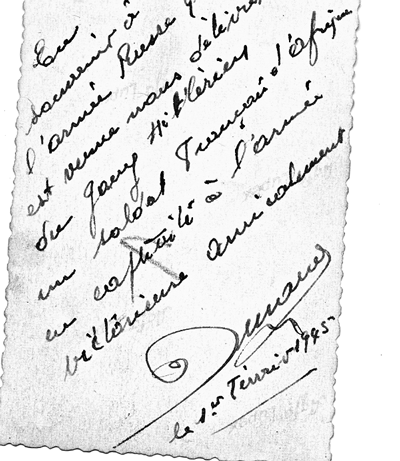 En
souvenir à
l'armée Russe q
est venue nous délivre
du gang Hitlérien
un soldat Français d'Afrique
en captivité à l'armée
victorieuse amicalement
le 1er Février 1945